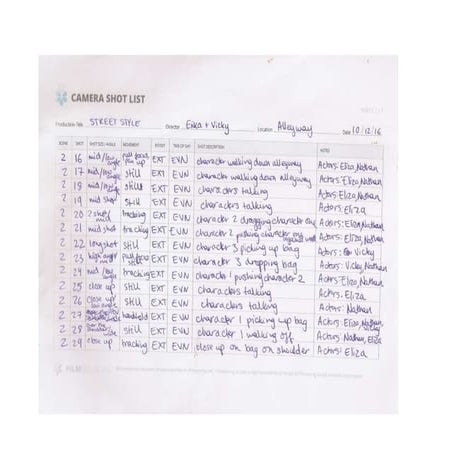 CAMERA SHOT LIST
Production Title STREET STYLE Director Erika + Vicky Location Alleyway Date 10.12.16
SCENE SHOT SHOT SIZE / ANGLE MOVEMENT INT/EXT TIME OF DAY SHOT DESCRIPTION NOTES
2 16 mid/low angle EXT EVN character walking down alleyway Actors: Eliza, Nathan
2 17 mid/low angle still EXT EVN character walking down alleyway Actors: Eliza, Nathan
2 18 mid/low angle still EXT EVN characters talking Actors: Eliza, Nathan
2 19 mid shot still EXT EVN characters talking Actors: Eliza
2 20 2 shot/mid tracking EXT EVN character 2 dragging character Actors: Eliza, Nathan
2 21 mid shot tracking EXT EVN character 2 pushing character against wall Actors: Eliza, Nathan
2 22 long shot still EXT EVN character 3 picking up bag Actors: Vicky
2 23 high angle EXT EVN character 3 dropping bag Actors: Vicky, Nathan
2 24 mid/low angle tracking EXT EVN character 1 pushing character 2 Actors: Eliza, Nathan
2 25 close up still EXT EVN characters talking Actors: Eliza
2 26 close up/low angle still EXT EVN characters talking Actors: Nathan
2 27 handheld EXT EVN character 1 picking up bag Actors: Eliza, Nathan
2 28 over the shoulder still EXT EVN character 1 walking off Actors: Nathan, Eliza
2 29 close up tracking EXT EVN close up on bag on shoulder Actors: Eliza
FILM